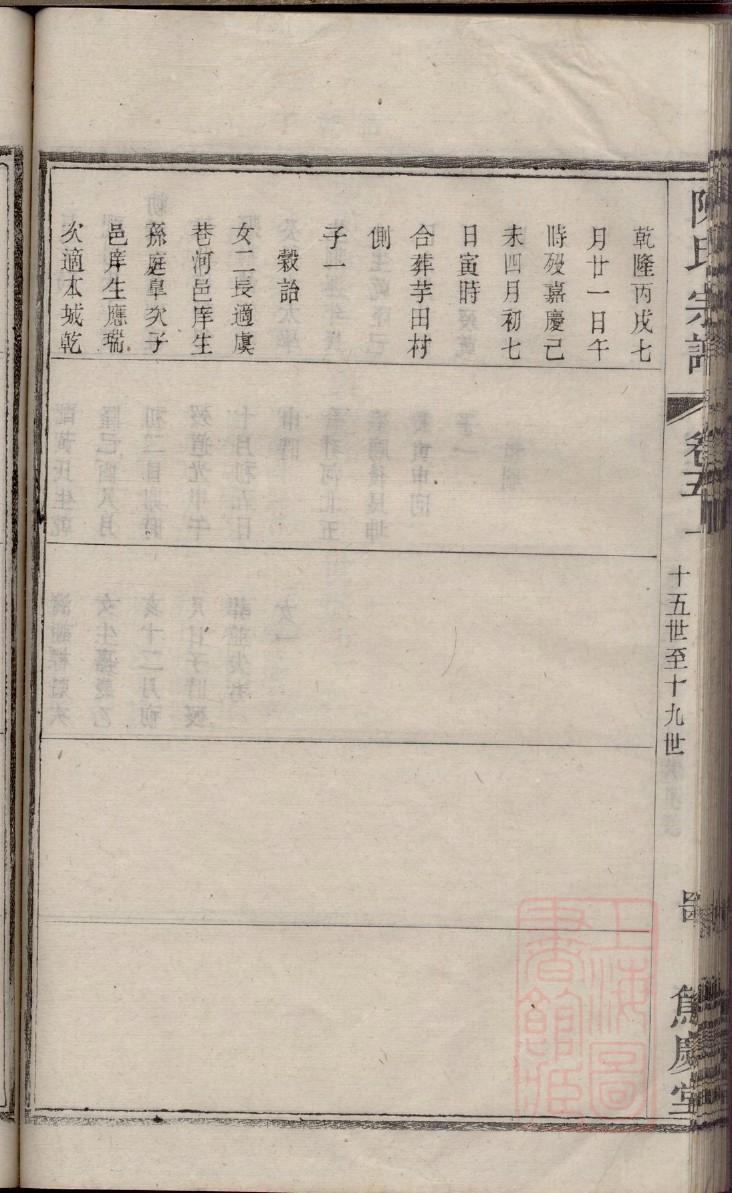 陳氏宗譜
卷五一
十五世至十九世
篤慶堂
乾隆丙戌七
月廿一日午
時殁嘉慶己
未四月初七
日寅時
合葬芋田村
側
子一
穀詒
女二長適虞
巷河邑庠生
孫庭臯次子
邑庠生應瑞
次適本城乾
上海圖
書館藏